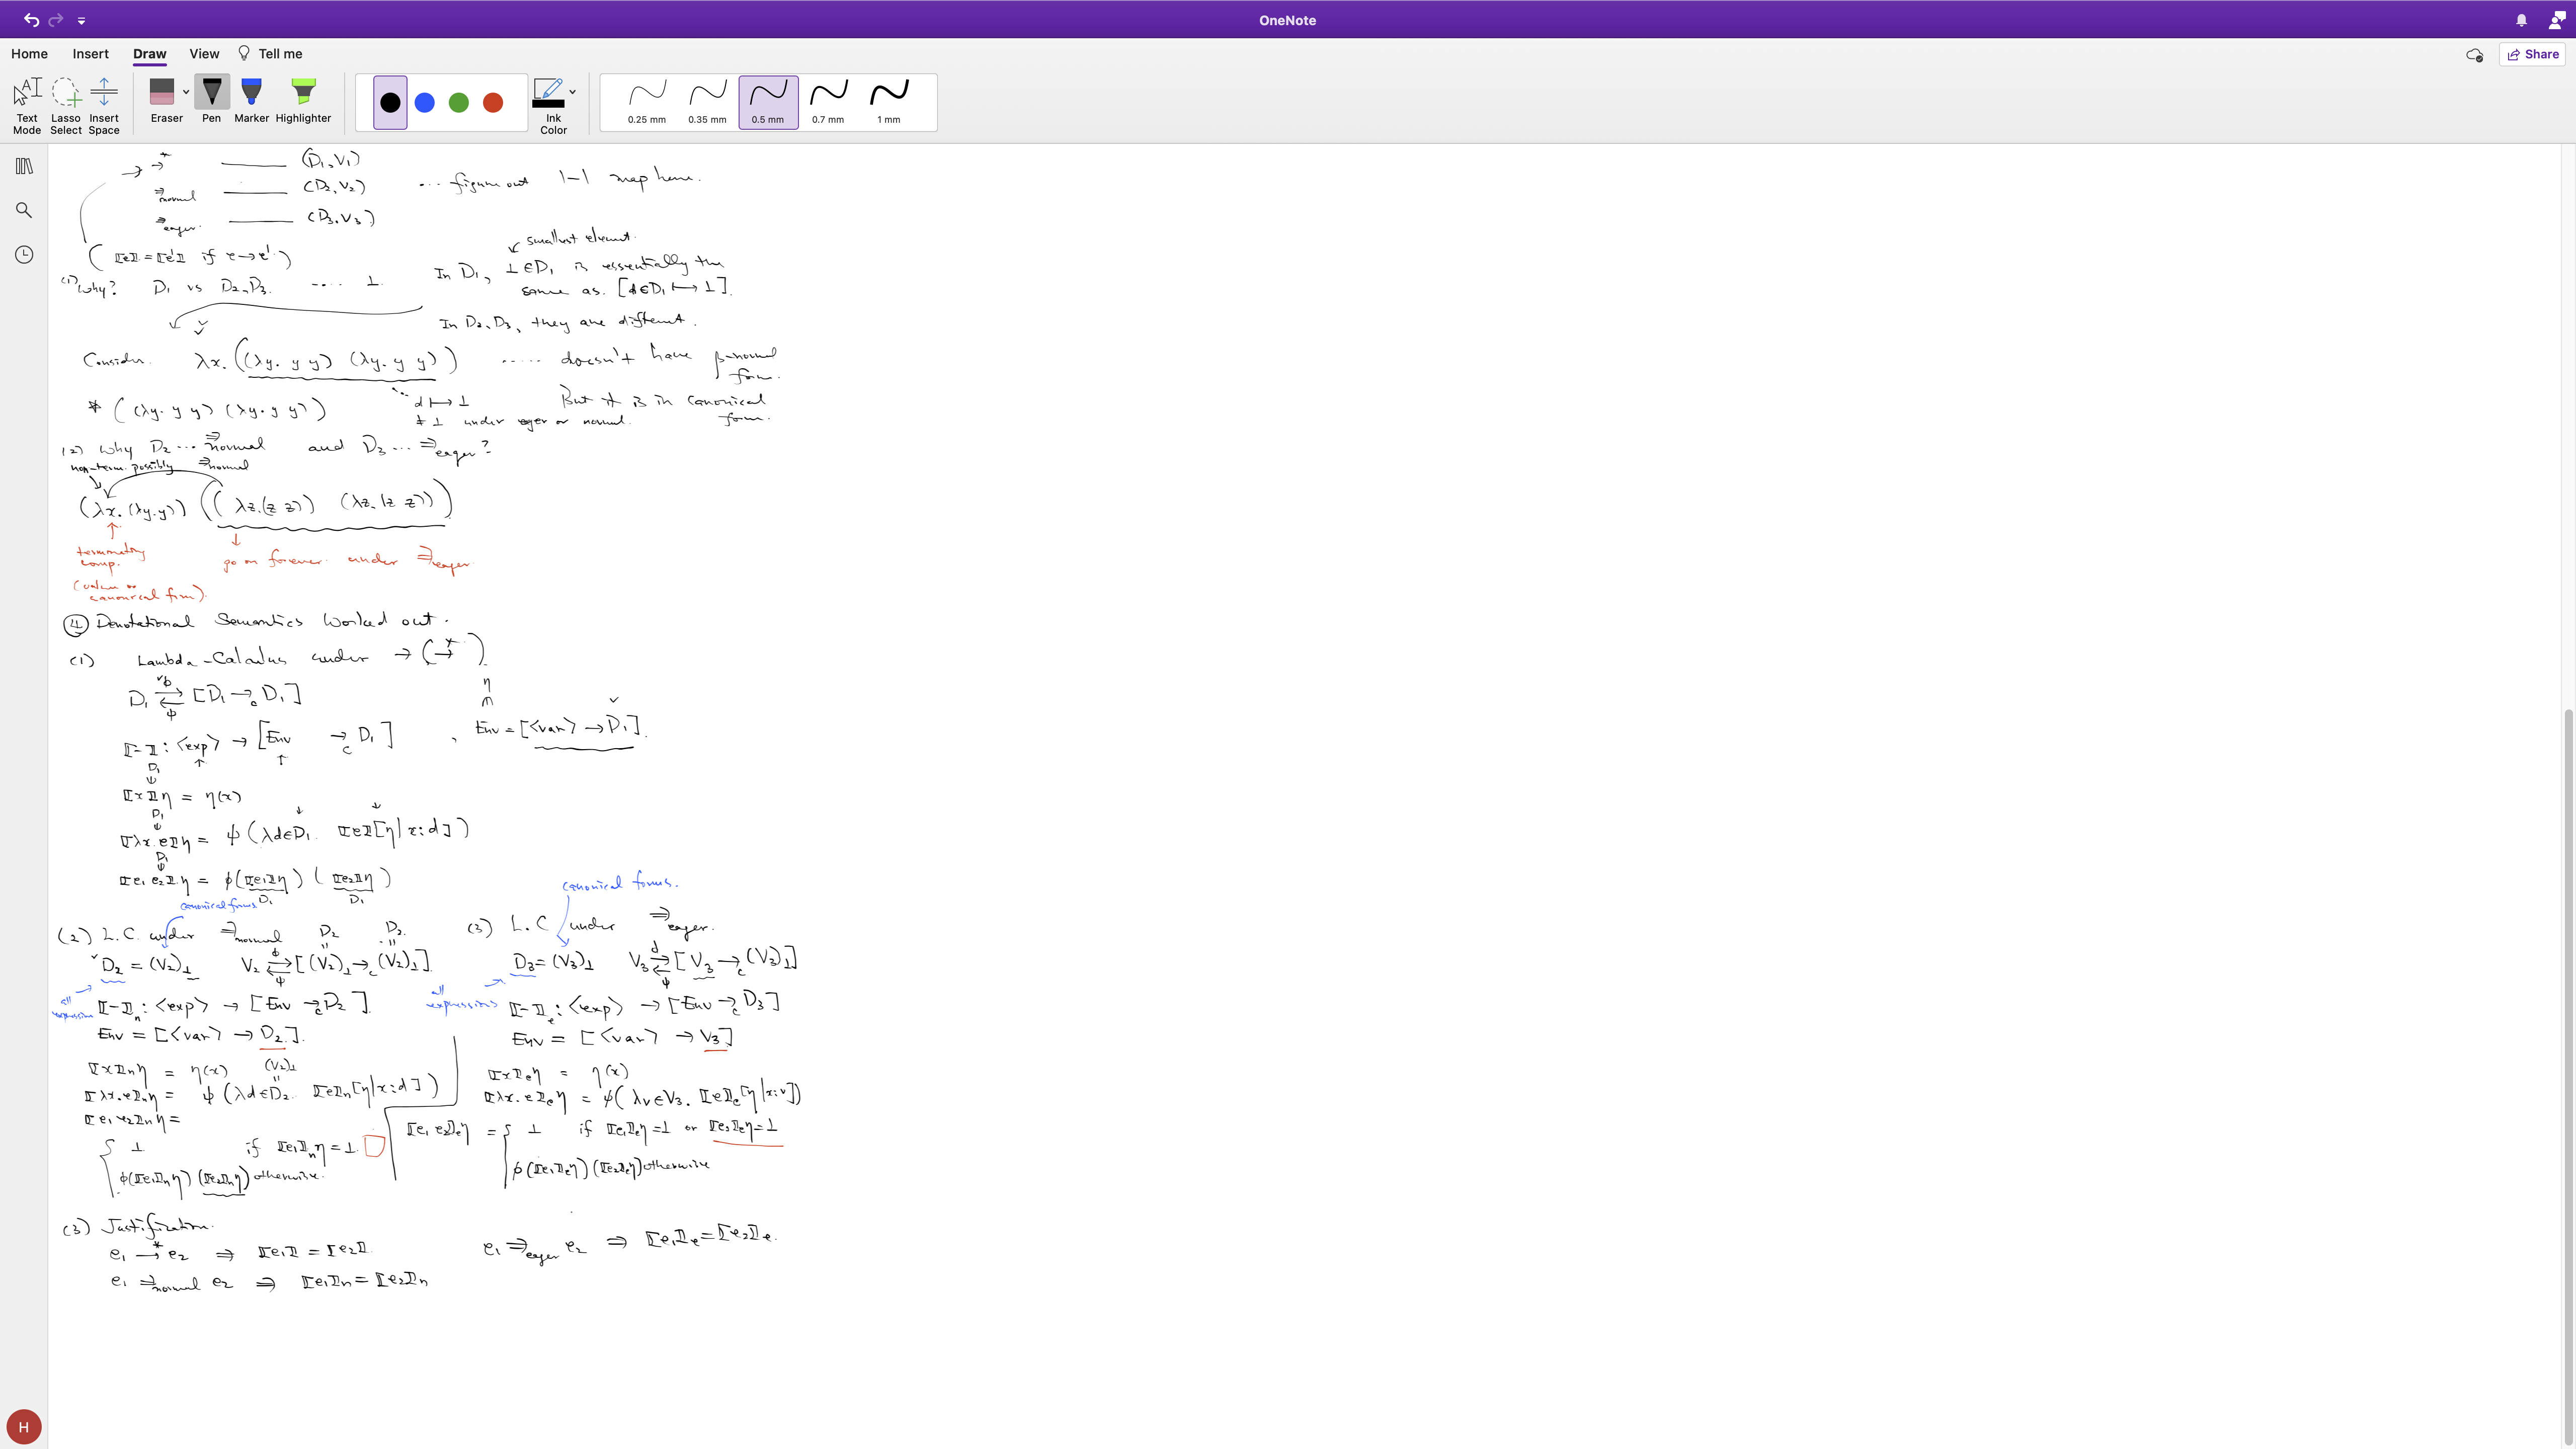 OneNote
Home Insert Draw View Tell me
Share
Text Mode
Lasso Select
Insert Space
Eraser
Pen
Marker
Highlighter
Ink Color
0.25 mm
0.35 mm
0.5 mm
0.7 mm
1 mm
→ →* —— (D₁, V₁)
⇒normal —— (D₂, V₂) ... figure out 1-1 map here.
⇒eager. —— (D₃, V₃)
(⟦e⟧ = ⟦e'⟧ if e → e'.)
↙ smallest element.
(1) Why? D₁ vs D₂, D₃. .... ⊥.
In D₁, ⊥ ∈ D₁ is essentially the
same as. [d ∈ D₁ ↦ ⊥].
In D₂, D₃, they are different.
Consider. λx. ((λy. y y) (λy. y y)) ..... doesn't have β-normal form.
d ↦ ⊥
≠ ⊥ under eager or normal.
But it is in canonical form.
* ((λy. y y) (λy. y y))
(2) Why D₂ ... ⇒normal and D₃ ... ⇒eager?
non-term. possibly ⇒normal
(λx. (λy. y)) ((λz. (z z)) (λz. (z z)))
↑ terminating comp.
(value or canonical form).
↓ go on forever under ⇒eager
④ Denotational Semantics Worked out.
(1) Lambda-Calculus under → (→*).
D₁ ⇄ [D₁ →c D₁]
ϕ
ψ
⟦-⟧ : <exp> → [Env →c D₁] , Env = [<var> → D₁].
η
D₁
⟦x⟧η = η(x)
D₁
⟦λx. e⟧η = ψ (λd∈D₁. ⟦e⟧[η | x: d])
D₁
⟦e₁ e₂⟧η = ϕ(⟦e₁⟧η) (⟦e₂⟧η)
D₁ D₁
canonical forms
(2) L.C. under ⇒normal D₂ D₂
D₂ = (V₂)⊥ V₂ ⇄ [(V₂)⊥ →c (V₂)⊥]
ϕ
ψ
all expression
⟦-⟧n : <exp> → [Env →c D₂].
Env = [<var> → D₂].
⟦x⟧n η = η(x) (V₂)⊥
⟦λx. e⟧n η = ψ (λd∈D₂. ⟦e⟧n [η | x: d])
⟦e₁ e₂⟧n η =
{ ⊥ if ⟦e₁⟧n η = ⊥
ϕ(⟦e₁⟧n η) (⟦e₂⟧n η) otherwise.
canonical forms.
(3) L.C under ⇒eager.
D₃ = (V₃)⊥ V₃ ⇄ [V₃ →c (V₃)⊥]
ϕ
ψ
all expressions
⟦-⟧e : <exp> → [Env →c D₃]
Env = [<var> → V₃]
⟦x⟧e η = η(x)
⟦λx. e⟧e η = ψ(λv∈V₃. ⟦e⟧e [η | x: v])
⟦e₁ e₂⟧e η = { ⊥ if ⟦e₁⟧e η = ⊥ or ⟦e₂⟧e η = ⊥
ϕ(⟦e₁⟧e η) (⟦e₂⟧e η) otherwise
(3) Justification.
e₁ →* e₂ ⇒ ⟦e₁⟧ = ⟦e₂⟧
e₁ ⇒eager e₂ ⇒ ⟦e₁⟧e = ⟦e₂⟧e.
e₁ ⇒normal e₂ ⇒ ⟦e₁⟧n = ⟦e₂⟧n
H